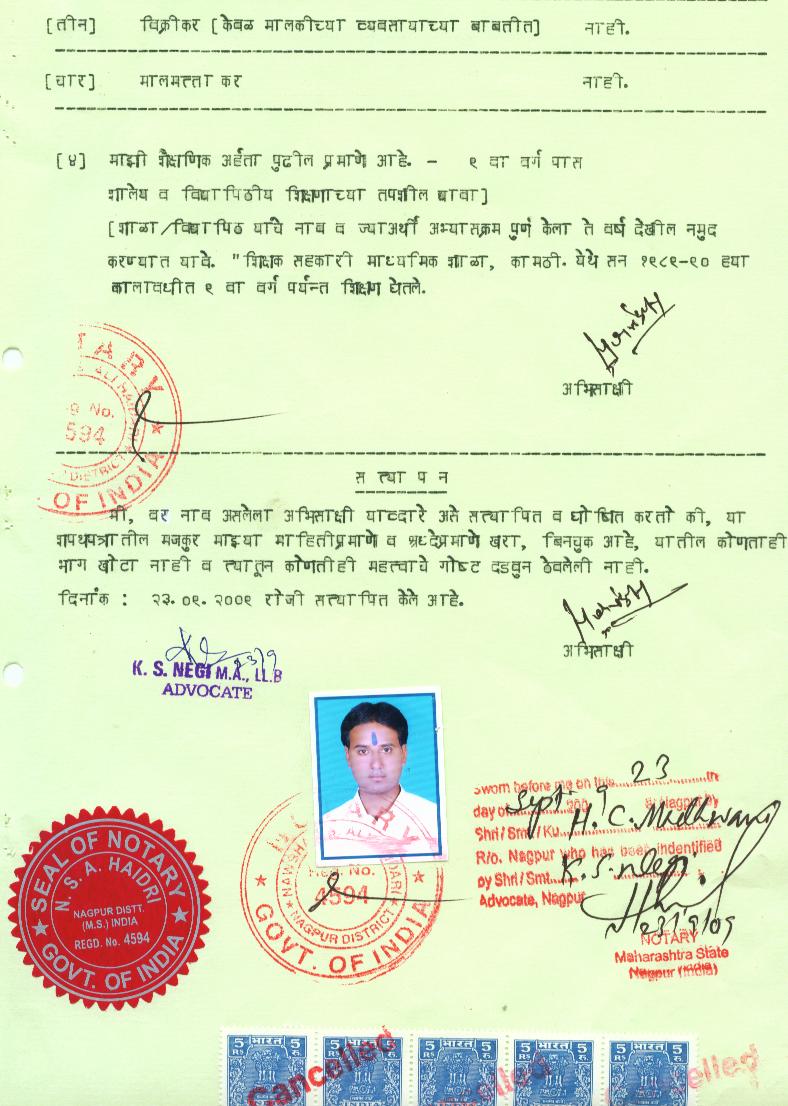 [तीन] विक्रीकर [केवळ मालकीच्या व्यवसायाच्या बाबतीत] नाही.
[चार] मालमत्ता कर नाही.
[४] माझी शैक्षणिक अर्हता पुढील प्रमाणे आहे. - ९ वा वर्ग पास
शालेय व विद्यापिठीय शिक्षणाच्या तपशील द्यावा]
[शाळा/विद्यापिठ यांचे नाव व ज्याअर्थी अभ्यासक्रम पुर्ण केला ते वर्ष देखील नमुद
करण्यात यावे. "शिक्षक सहकारी माध्यमिक शाळा, कामठी. येथे सन १९८९-९० ह्या
कालावधीत ९ वा वर्ग पर्यन्त शिक्षण घेतले.
अभिसाक्षी
TARY
g No.
4594
DISTRICT
OF INDIA
स त्या प न
मी, वर नाव असलेला अभिसाक्षी याव्दारे असे सत्यापित व घोषित करतो की, या
शपथपत्रातील मजकुर माझ्या माहितीप्रमाणे व श्रध्देप्रमाणे खरा, बिनचुक आहे, यातील कोणताही
भाग खोटा नाही व त्यातून कोणतीही महत्वाचे गोष्ट दडवुन ठेवलेली नाही.
दिनांक : २३.०९.२००९ रोजी सत्यापित केले आहे.
अभिसाक्षी
23/9
K. S. NEGI M.A., LL.B
ADVOCATE
SEAL OF NOTARY
N. S. A. HAIDRI
NAGPUR DISTT.
(M.S.) INDIA
REGD. No. 4594
GOVT. OF INDIA
Reg. No.
4594
NAGPUR DISTRICT
GOVT. OF INDIA
Sworn before me on this 23 in
day of Sept. 2009 at Nagpur by
Shri/Smt/Ku. H. C. Madhwani
R/o. Nagpur who has been indentified
by Shri/Smt. K. S. Negi
Advocate, Nagpur
23/9/09
NOTARY
Maharashtra State
Nagpur (India)
5 भारत 5 5 भारत 5 5 भारत 5 5 भारत 5 5 भारत 5
RS रु. RS रु. RS रु. RS रु. RS रु.
Cancelled